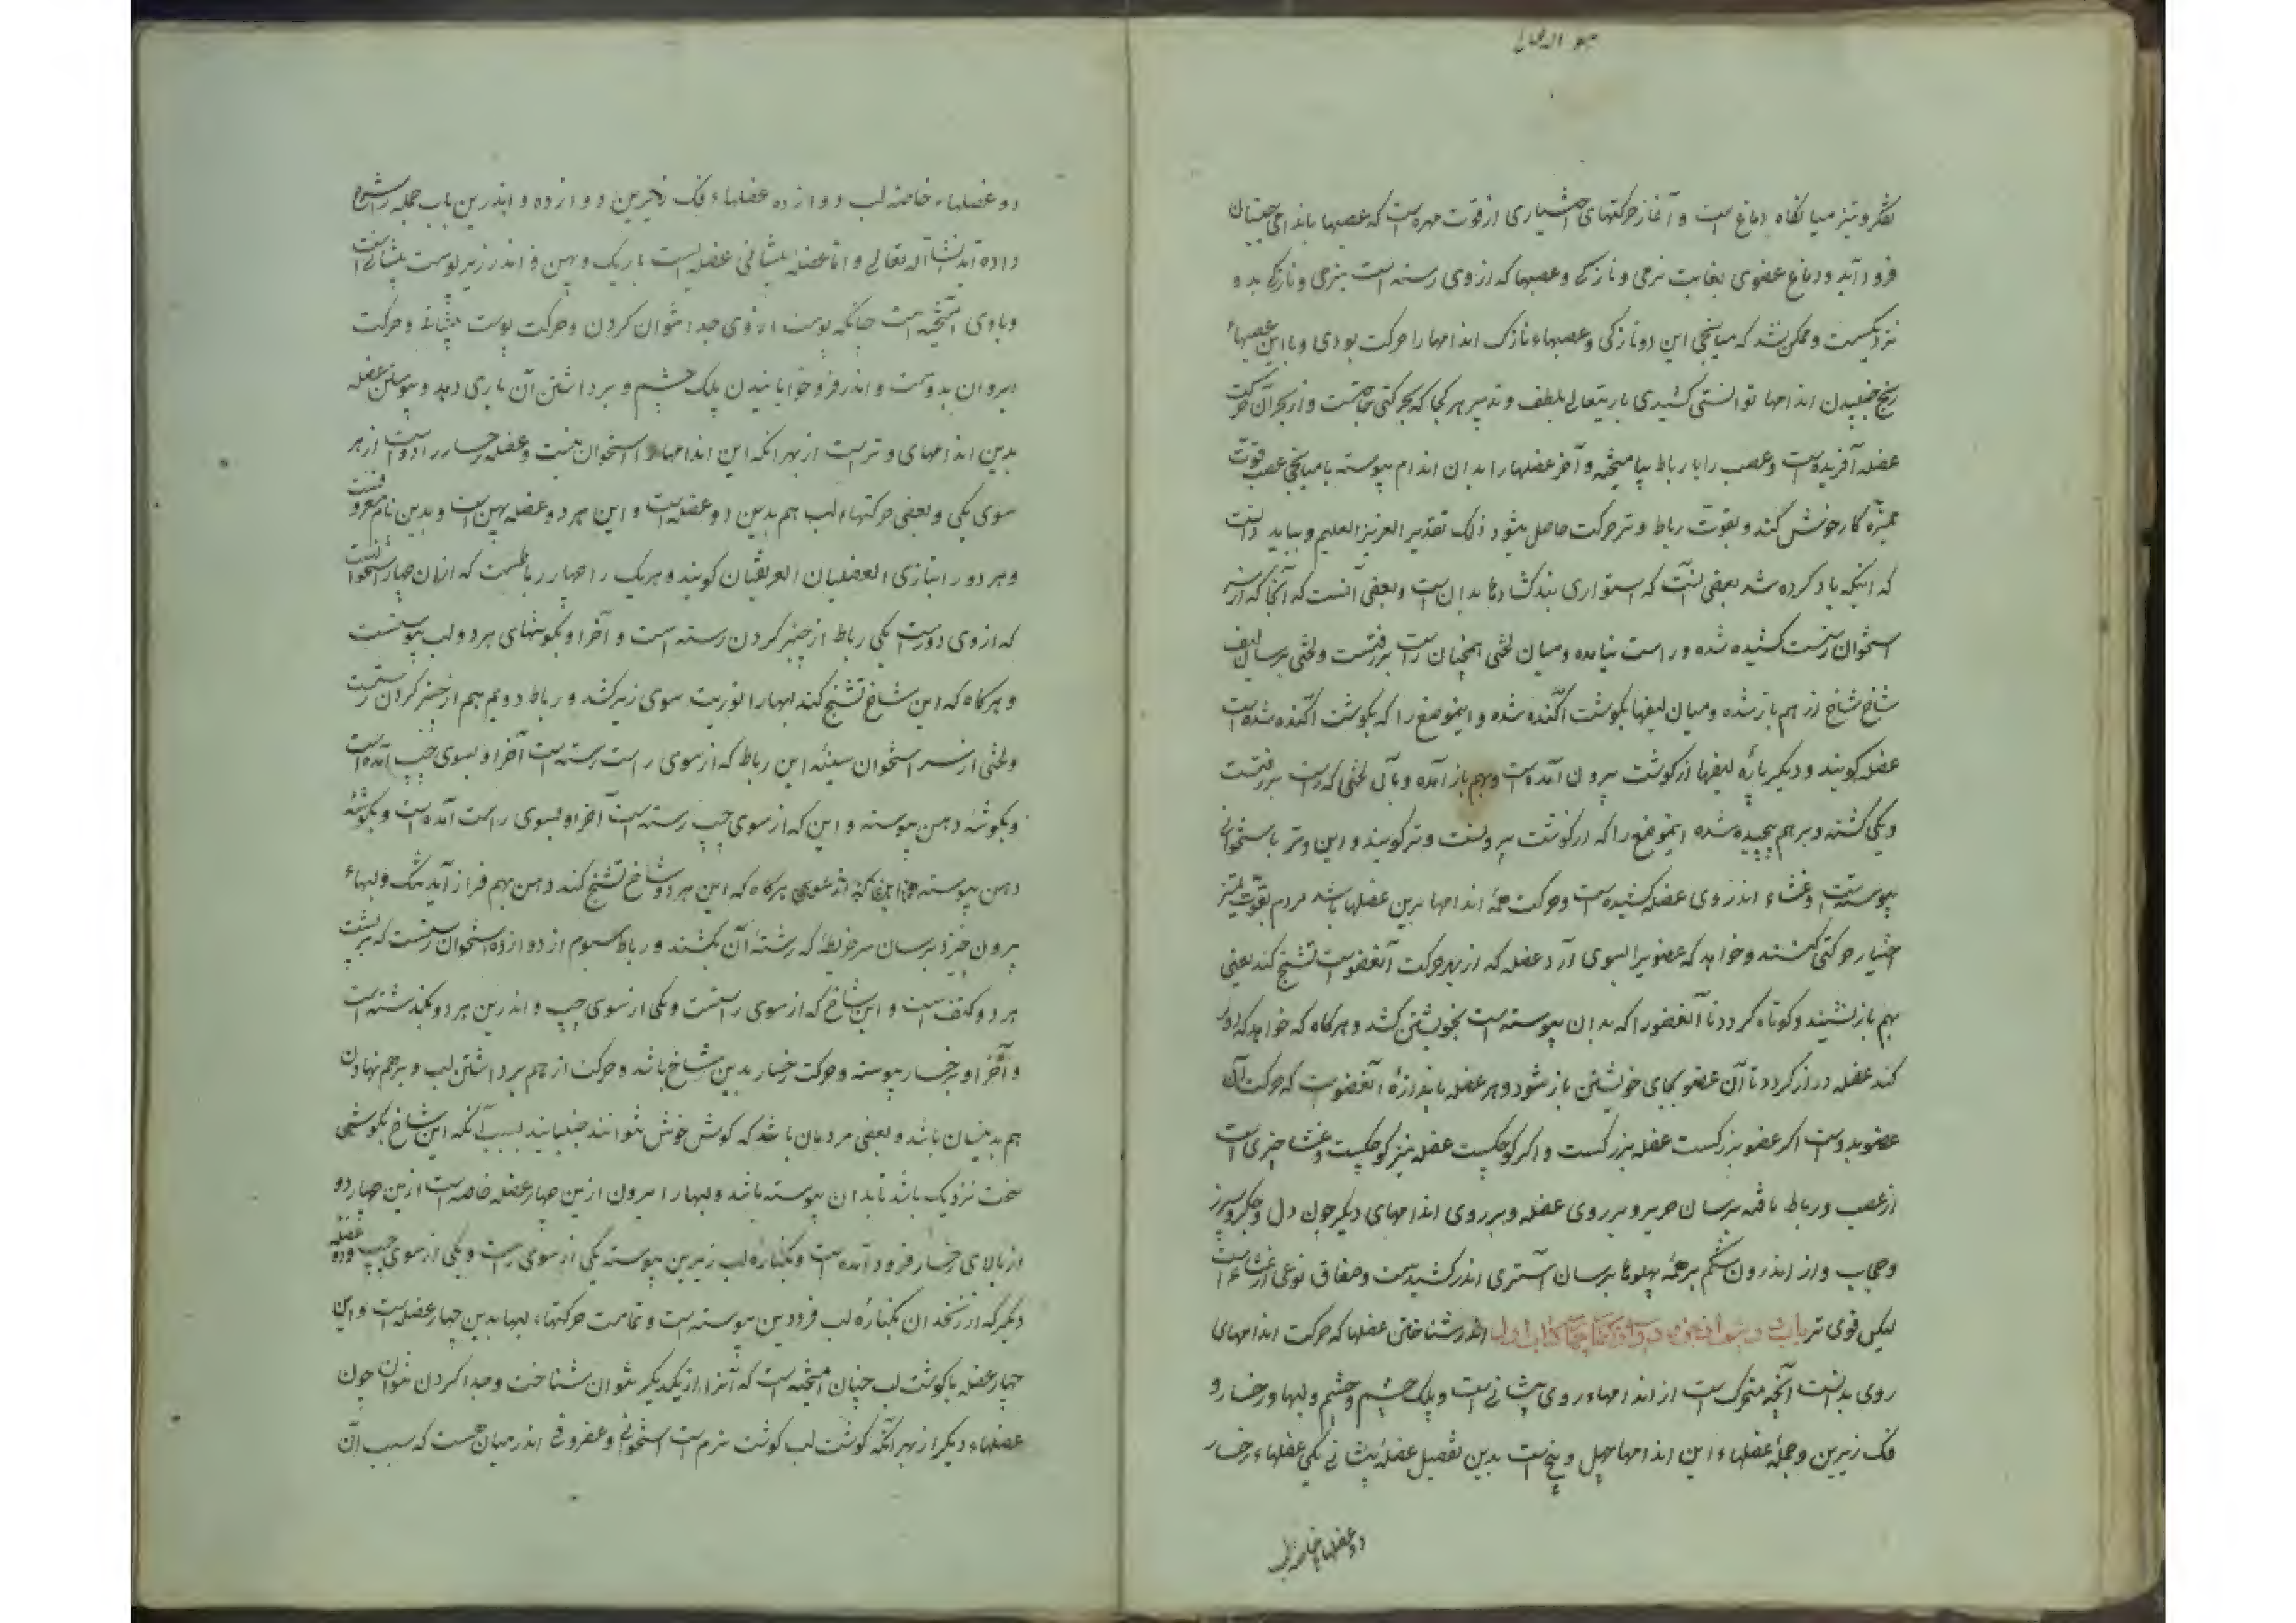 هو الله تعالی
تفکر و تیز میانگاه دماغ است و آغاز حرکتهای اختیاری از قوت مهره است که عصبها باندامی جنبان
فرود آید و دماغ عضوی بغایت نرمی و نازکی و عصبها که از وی رسته است بنرمی و نازکی بدو
نزدیکست و ممکن نشد که میانجی این دو نازکی و عصبهاء نازک اندامها را حرکت بودی و یا این عصبهاء
رنج جنبیدن اندامها توانستی کشیدی باریتعالی بلطف و تدبیر هر کجا که بحرکتی حاجتست و از بهر آن حرکت
عضله آفریده است و عصب را با رباط بیامیخته و آخر عضلها را بدان اندام پیوسته تا میانجی عصب قوت
ممیزه کار خویش کند و بقوت رباط و وتر حرکت حاصل شود ذلک تقدیر العزیز العلیم و بباید دانست
که اینکه یاد کرده شد بعضی آنست که استواری بندگشادها بدان است و بعضی آنست که آنجا که از سر
استخوان رستست کشیده شده و راست بیامده و میان لختی همچنان راست برفتست و لختی برسان لیف
شاخ شاخ از هم باز شده و میان لیفها بگوشت آکنده شده و اینموضع را که بگوشت آکنده شده است
عضله گویند و دیگر باره لیفها از گوشت بیرون آمده است و بهم باز آمده و بآن لختی که راست برفتست
و یکی گشته و برهم پیچیده شده اینموضع را که از گوشت بیرونست وتر گویند و این وتر باستخوانی
پیوستست و غشاء اندر روی عضله کشیده است و حرکت همهٔ اندامها برین عضلها باشد مردم بقوت ممیز
اختیار حرکتی کنند و خواهد که عضویرا بسوی آرد عضله که از بهر حرکت آنعضوست تشنج کند یعنی
بهم باز نشیند و کوتاه گردد تا آنعضو را که بدان پیوسته است بخویشتن کشد و هرگاه که خواهد که دور
کند عضله دراز گردد تا آن عضو بجای خویشتن باز شود و هر عضله باندازهٔ آنعضوست که حرکت آن
عضو بدوست اگر عضو بزرگست عضله بزرگست و اگر کوچکست عضله نیز کوچکست و غشا چیزی است
از عصب و رباط بافته برسان حریر و بر روی عضله و بر روی اندامهای دیگر چون دل و جگر و سپرز
و حجاب و از اندرون شکم بر همهٔ پهلوها برسان آستری اندر کشیدست و صفاق نوعی از غشاء است
لیکن قوی تر باب دوم از جزو دوم از گفتار چهارم از کتاب اول اندر شناختن عضلها که حرکت اندامهای
روی بدانست آنچه متحرک است از اندامهاء روی پیشانی است و پلک چشم و چشم و لبها و رخسار و
فک زیرین و جملهٔ عضلهاء این اندامها چهل و پنج است بدین تفصیل عضلهٔ پیشانی یکی عضلهاء رخسار
دو عضلهاء خاصهٔ لب
دو عضلهاء خاصهٔ لب دوازده عضلهاء فک زیرین دوازده و اندرین باب جمله را شرح
داده آید انشاء الله تعالی و اما عضلهٔ پیشانی عضله ایست باریک و پهن و اندر زیر پوست پیشانی است
و با وی آمیخته است چنانکه پوست از وی جدا نتوان کردن و حرکت پوست پیشانی و حرکت
ابروان بدوست و اندر فرو خوابانیدن پلک چشم و برداشتن آن یاری دهد و پیوستن عضله
بدین اندامهای وتر است از بهر آنکه این اندامها را استخوان نیست و عضله رخسار را دو است از هر
سوی یکی و بعضی حرکتهاء لب هم بدین دو عضله است و این هر دو عضله پهن است و بدین نام معروفست
و هر دو را بتازی العضلتان العریضتان گویند و هر یک را چهار رباطست که از آن چهار استخوانست
که از وی دورست یکی رباط از چنبر گردن رسته است و آخر او بگوشهای هر دو لب پیوستست
و هرگاه که این شاخ تشنج کند لبها را بتوریب سوی زیر کشد و رباط دویم هم از چنبر گردن رستست
و لختی از سر استخوان سینه این رباط که از سوی راست رسته است آخر او بسوی چپ آمده است
و بگوشهٔ دهن پیوسته و این که از سوی چپ رسته است آخر او بسوی راست آمده است و بگوشهٔ
دهن پیوسته هرگاه که این هر دو شاخ تشنج کند دهن بهم فراز آید تنگ و لبهاء
بیرون خیزد برسان سر خریطهٔ که رشتهٔ آن بکشند و رباط سیوم از دوازده استخوان رستست که بر پشت
هر دو کتف است و این شاخ که از سوی راستست و یکی از سوی چپ و اندرین هر دو بگذشته است
و آخر او برخسار پیوسته و حرکت رخسار بدین شاخ باشد و حرکت از هم برداشتن لب و برهم نهادن
هم بدینسان باشد و بعضی مردمان باشد که گوش خویش بتوانند جنبانید بسبب آنکه این شاخ بگوشی
سخت نزدیک باشد تا بدان پیوسته باشد و لبها را بیرون ازین چهار عضله خاصه است ازین چهار دو
از بالای رخسار فرود آمده است و بکنارهٔ لب زیرین پیوسته یکی از سوی راست و یکی از سوی چپ و دو عضله
دیگر که از زنخدان بکنارهٔ لب فرودین پیوسته است و تمامت حرکتهاء لبها بدین چهار عضله است و این
چهار عضله با گوشت لب چنان آمیخته است که آنرا از یکدیگر نتوان شناخت و جدا کردن نتوان چون
عضلهاء دیگر از بهر آنکه گوشت لب گوشت نرم است استخوانی و غضروفی اندر میان نیست که بسبب آن